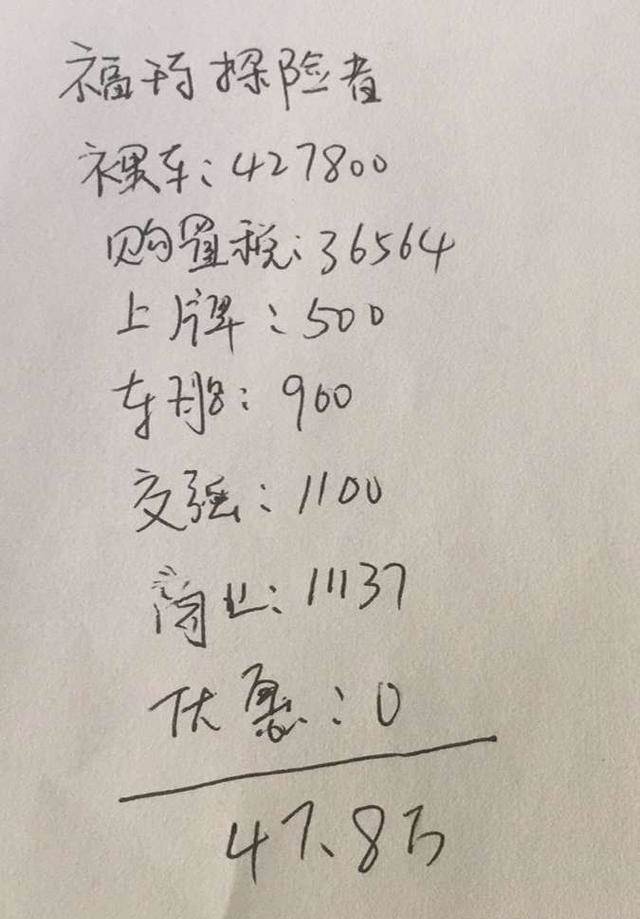 福特探险者
裸车:427800
购置税:36564
上牌:500
车船:960
交强:1100
商业:11137
优惠:0
47.8万